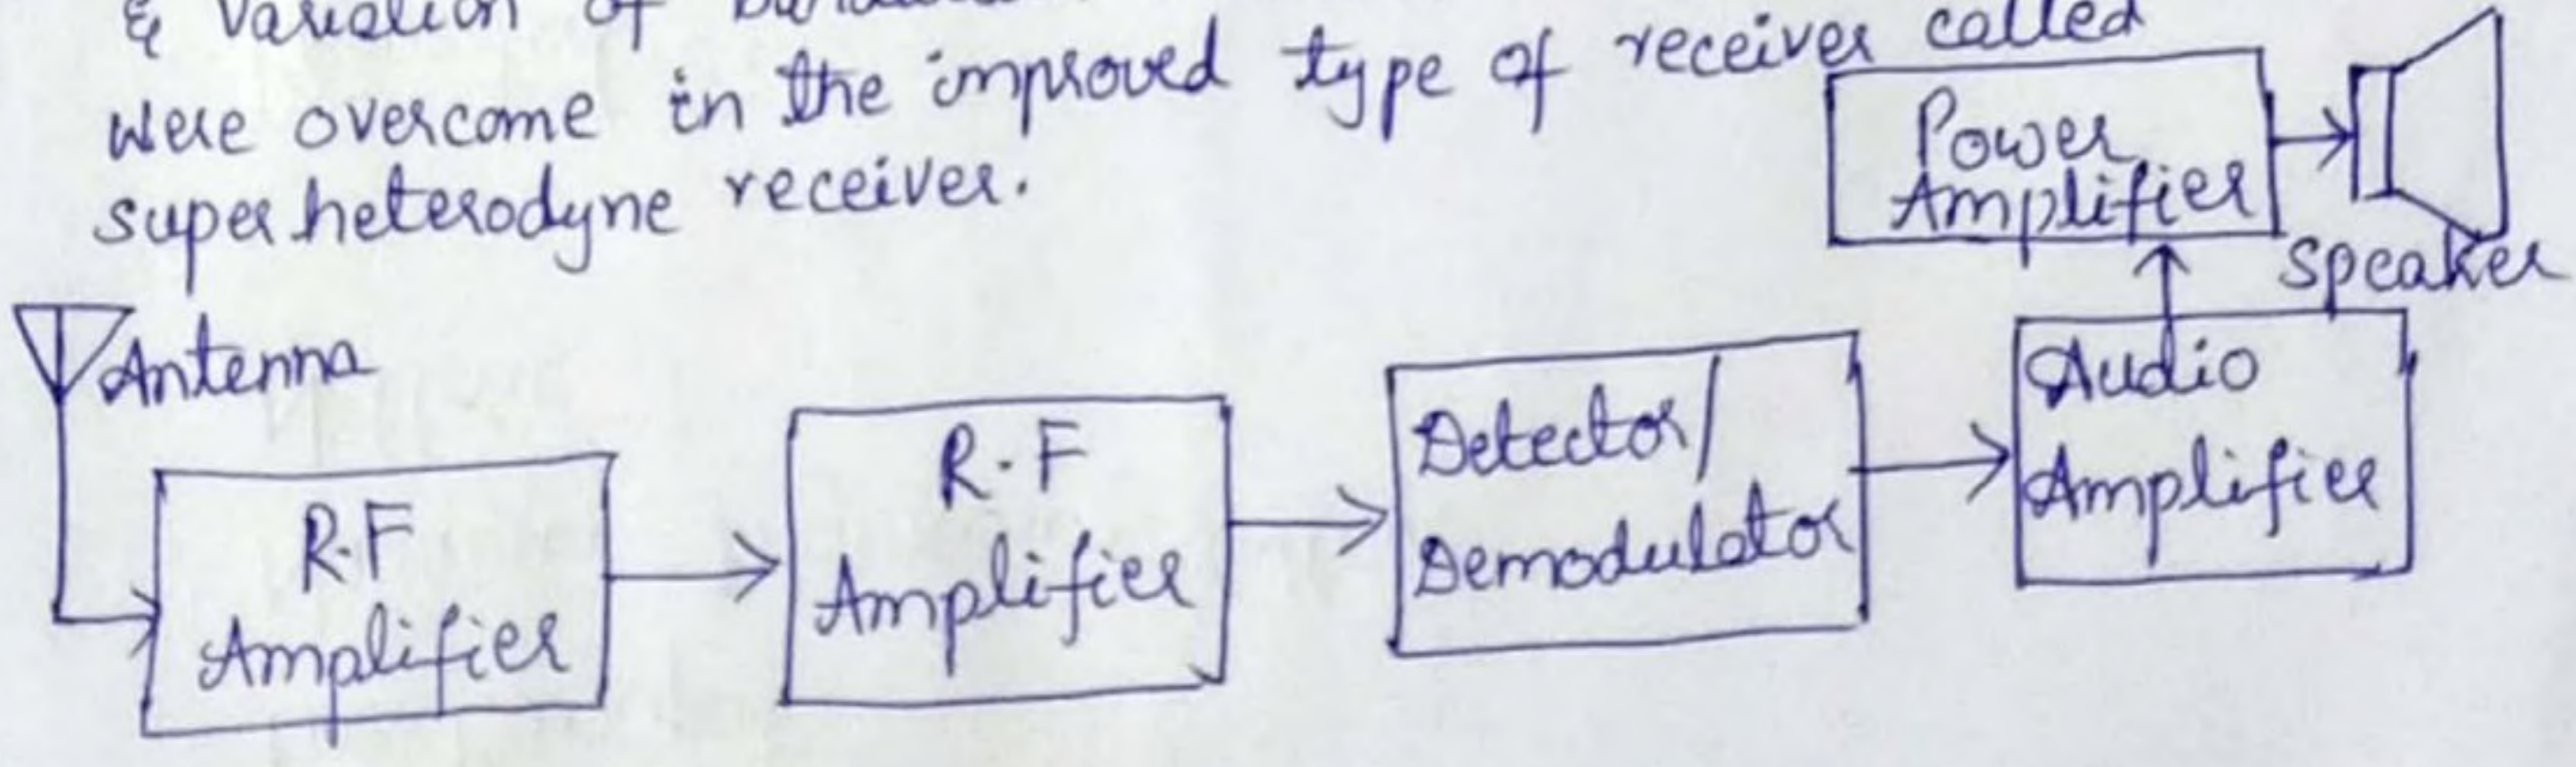 & Variation of
were overcome in the improved type of receiver called
superheterodyne receiver.
Power
Amplifier
Speaker
Antenna
R.F
Amplifier
R.F
Amplifier
Detector/
Demodulator
Audio
Amplifier